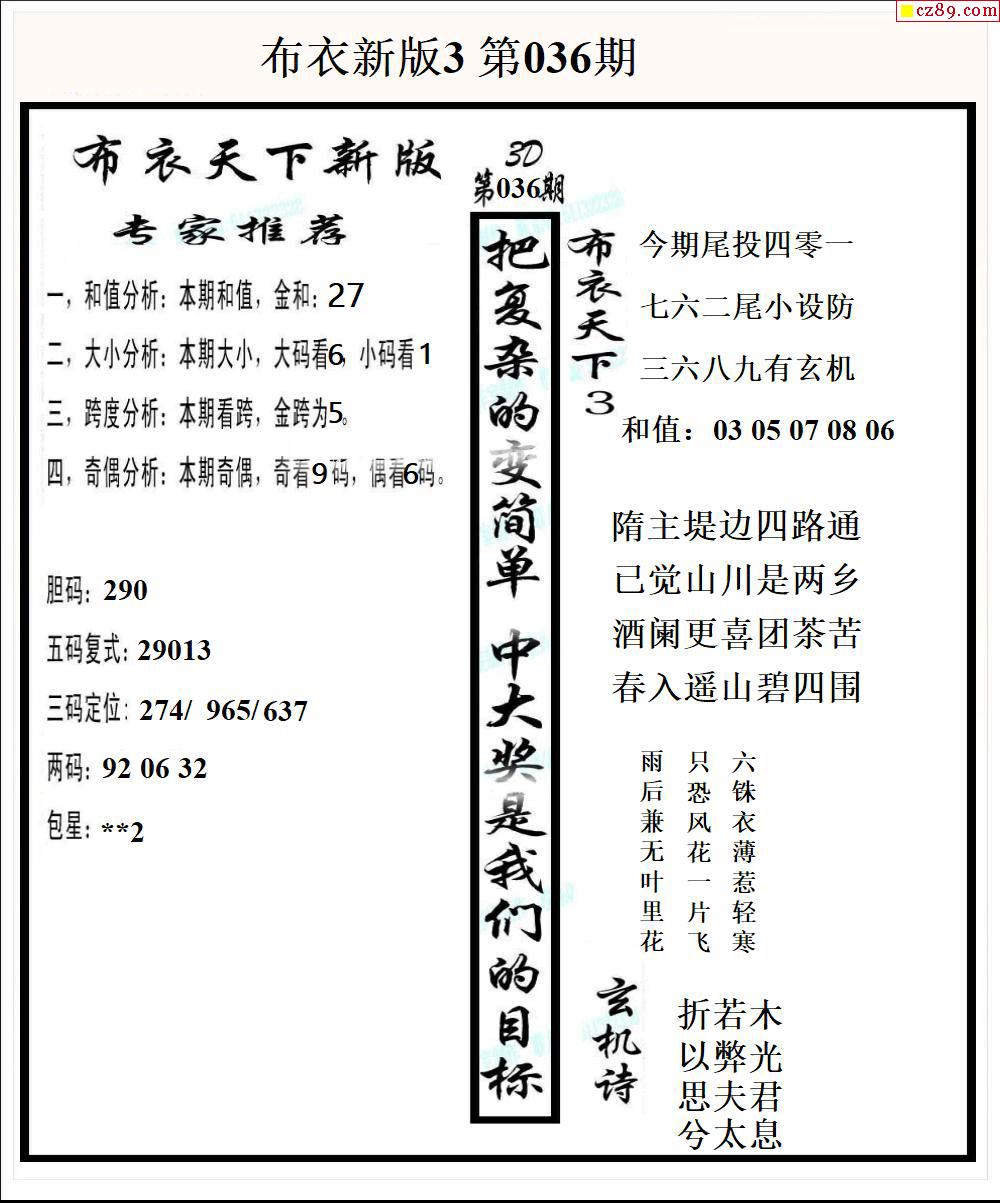 cz89.com
布衣新版3 第036期
布衣天下新版
专家推荐
一，和值分析：本期和值，金和：27
二，大小分析：本期大小，大码看6，小码看1
三，跨度分析：本期看跨，金跨为5。
四，奇偶分析：本期奇偶，奇看9码，偶看6码。
胆码：290
五码复式：29013
三码定位：274/ 965/637
两码：92 06 32
包星：**2
3D
第036期
把复杂的变简单 中大奖是我们的目标
布衣天下3
今期尾投四零一
七六二尾小设防
三六八九有玄机
和值：03 05 07 08 06
隋主堤边四路通
已觉山川是两乡
酒阑更喜团茶苦
春入遥山碧四围
六铢衣薄惹轻寒
只恐风花一片飞
雨后兼无叶里花
玄机诗
折若木
以弊光
思夫君
兮太息